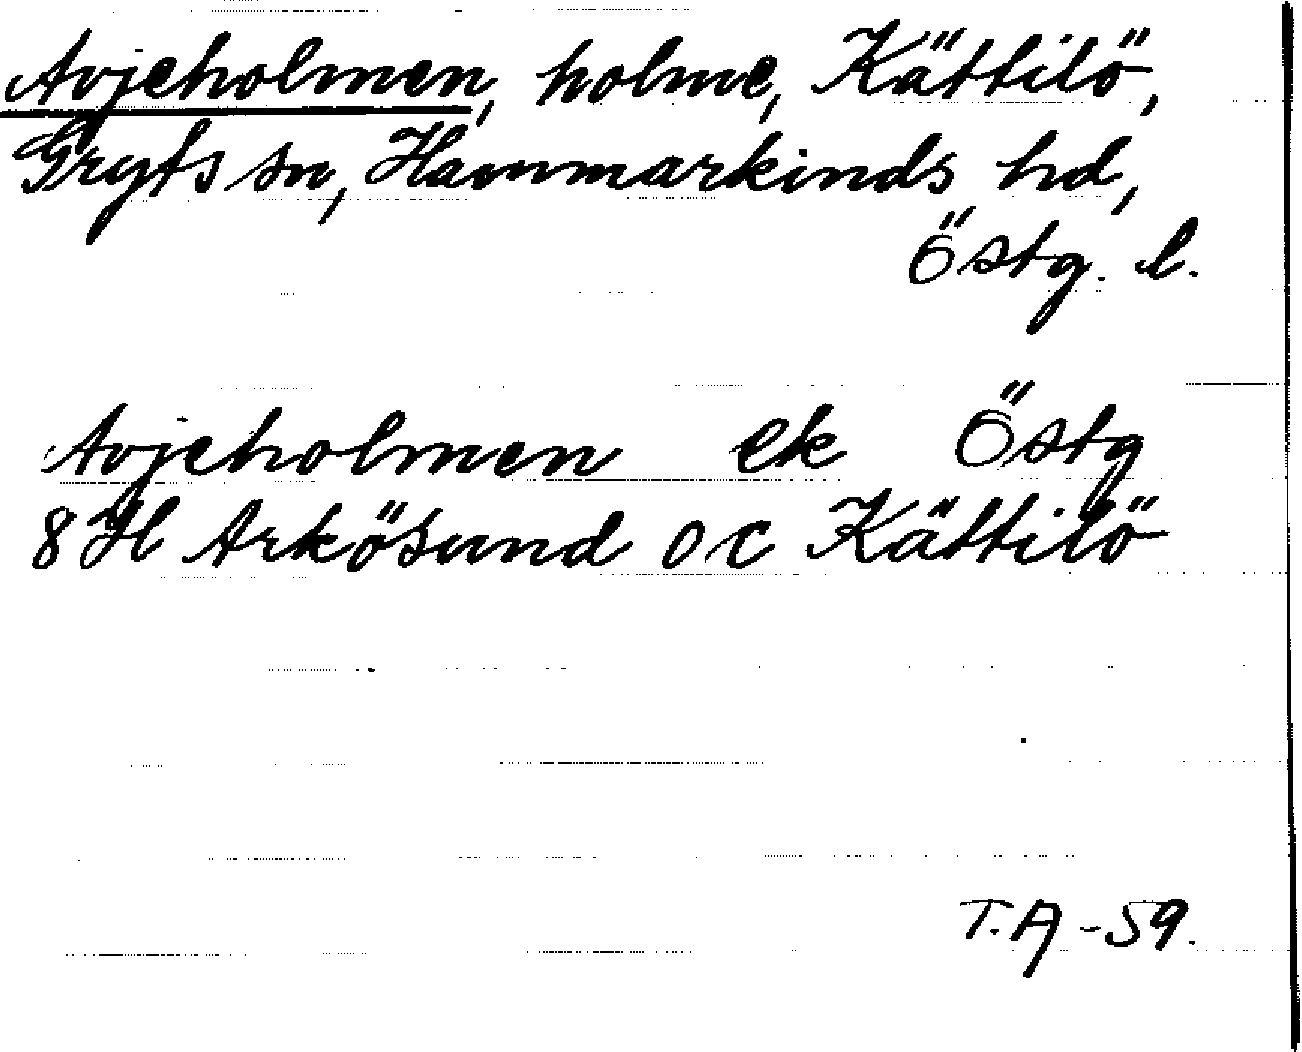 Avjeholmen, holme, Kättilö,
Gryts sn, Hammarkinds hd,
Östg. l.
Avjeholmen ek Östg
8 H Arkösund o, c Kättilö
T.A -59.